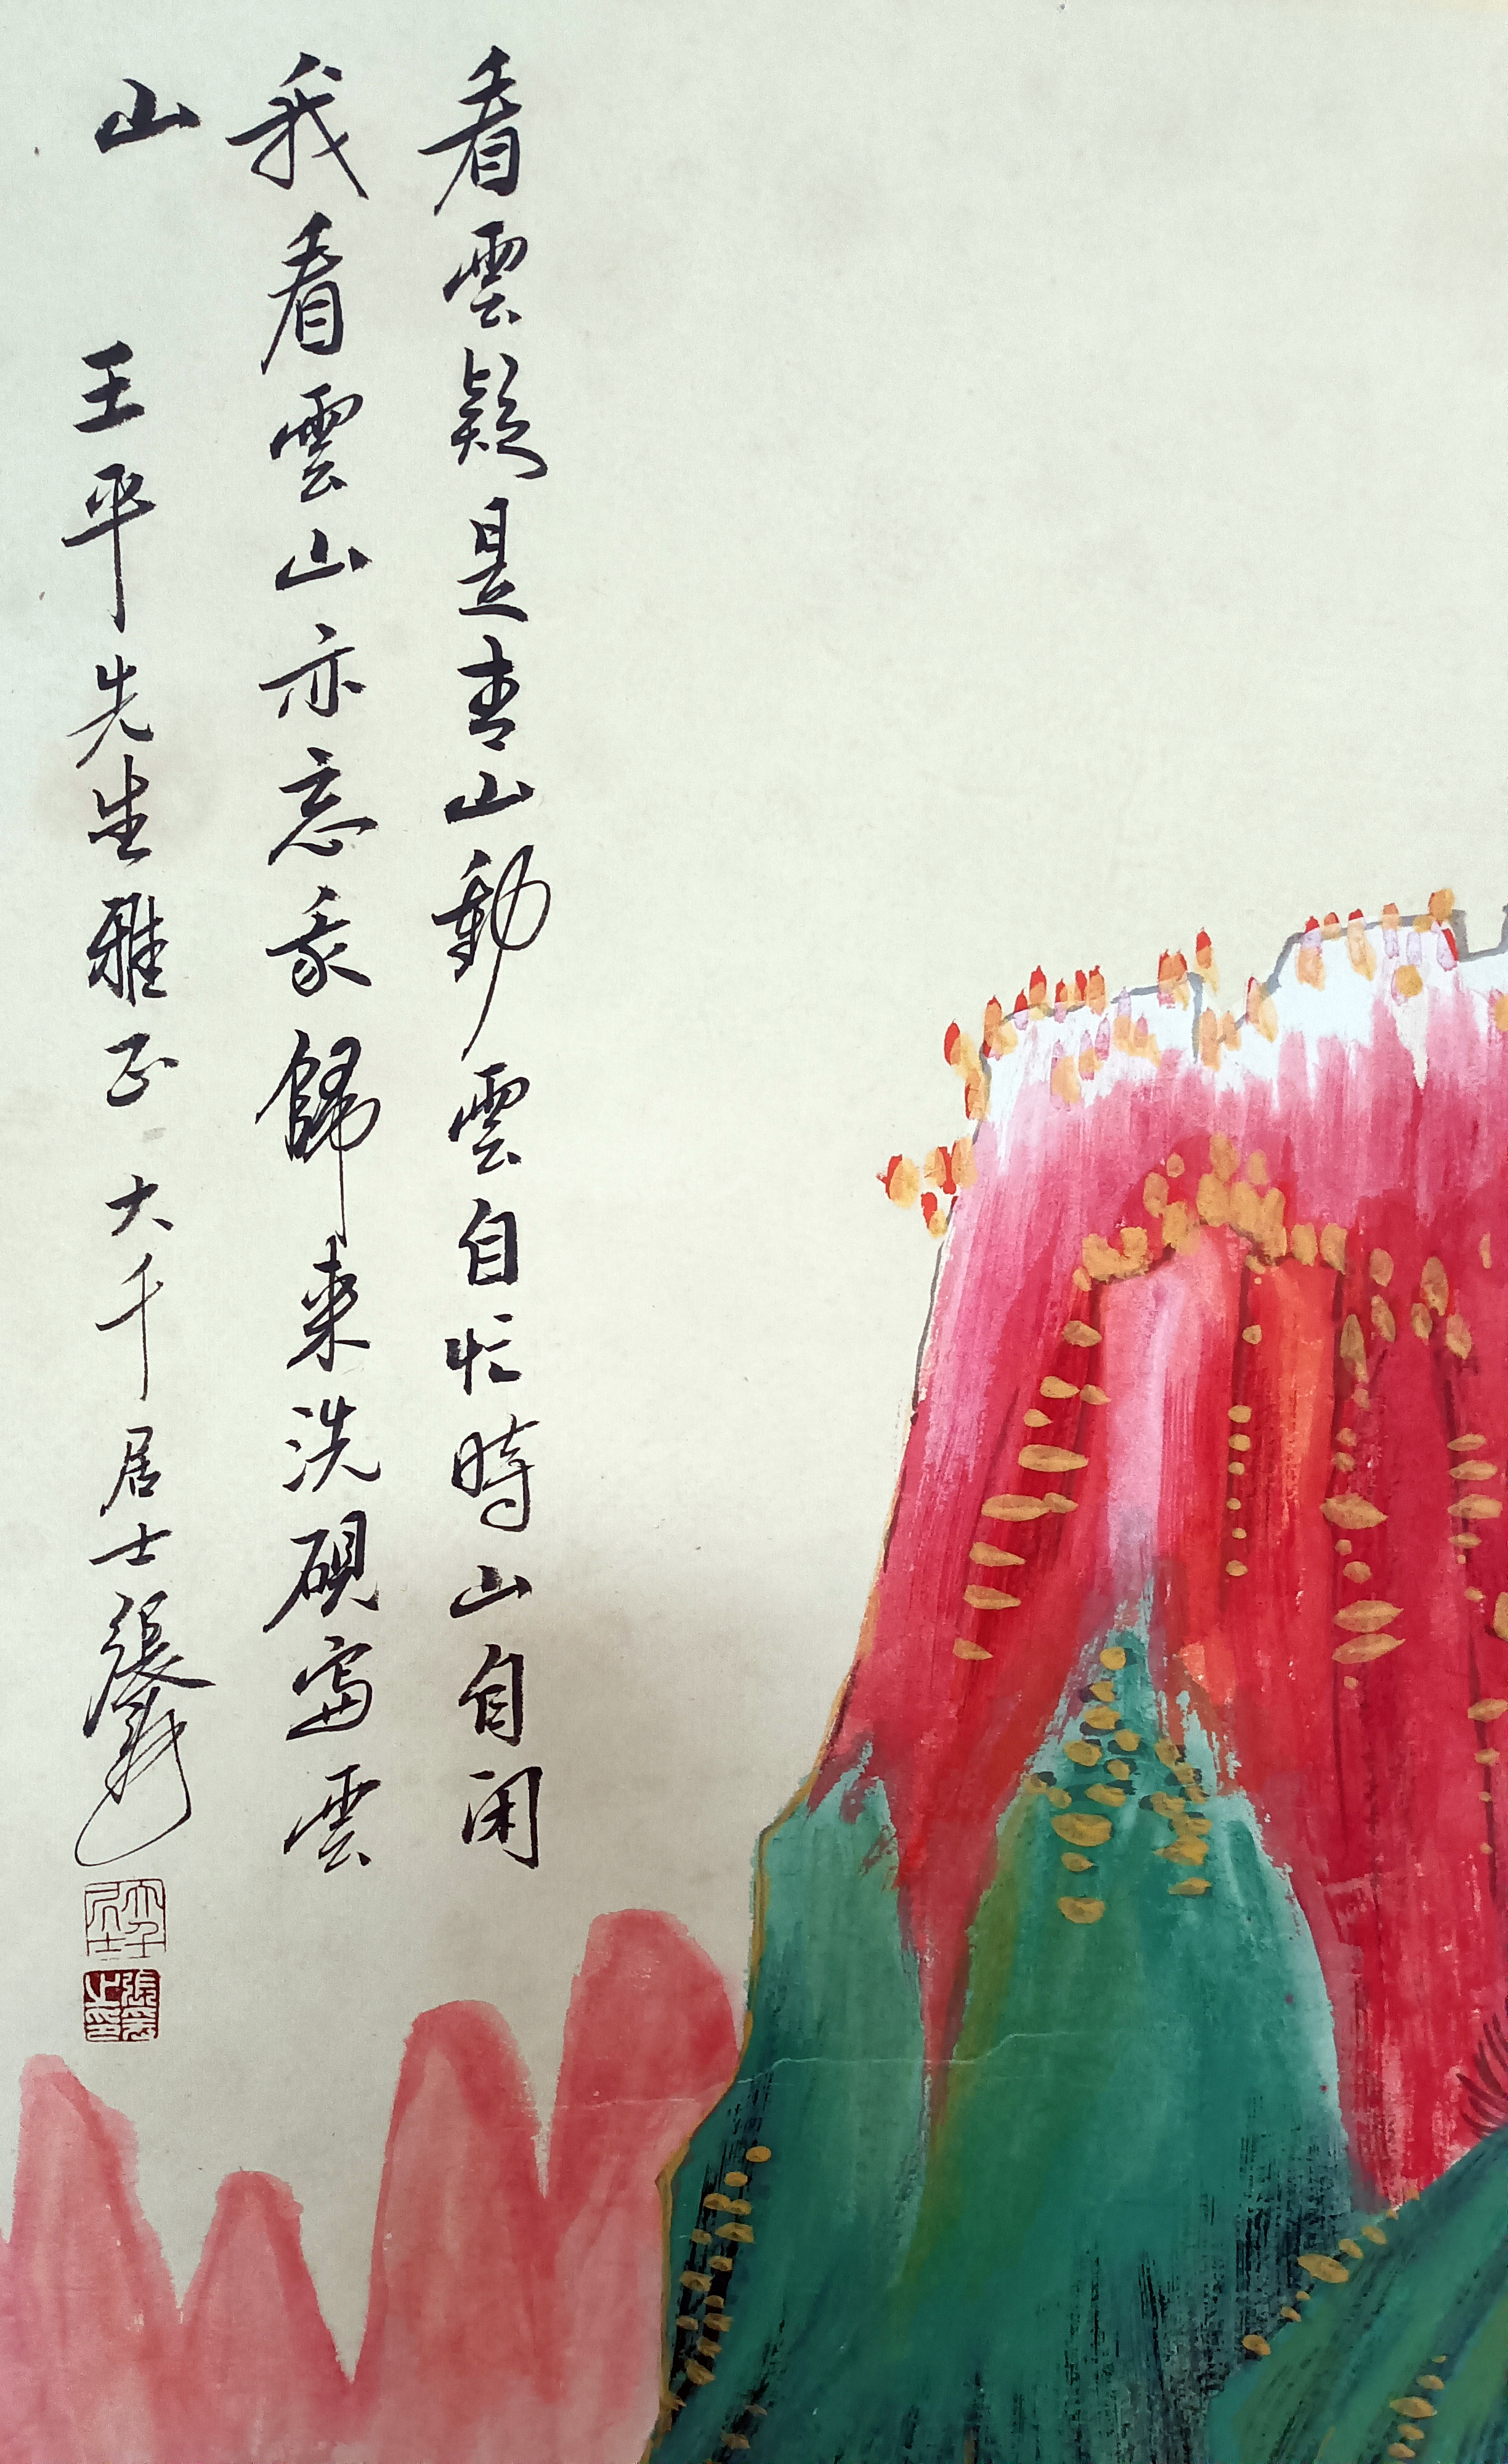 看雲疑是青山動雲自忙時山自闲
我看雲山亦忘我歸來洗硯寫雲
山
王平先生雅正大千居士張爰
大千居士
張爰之印